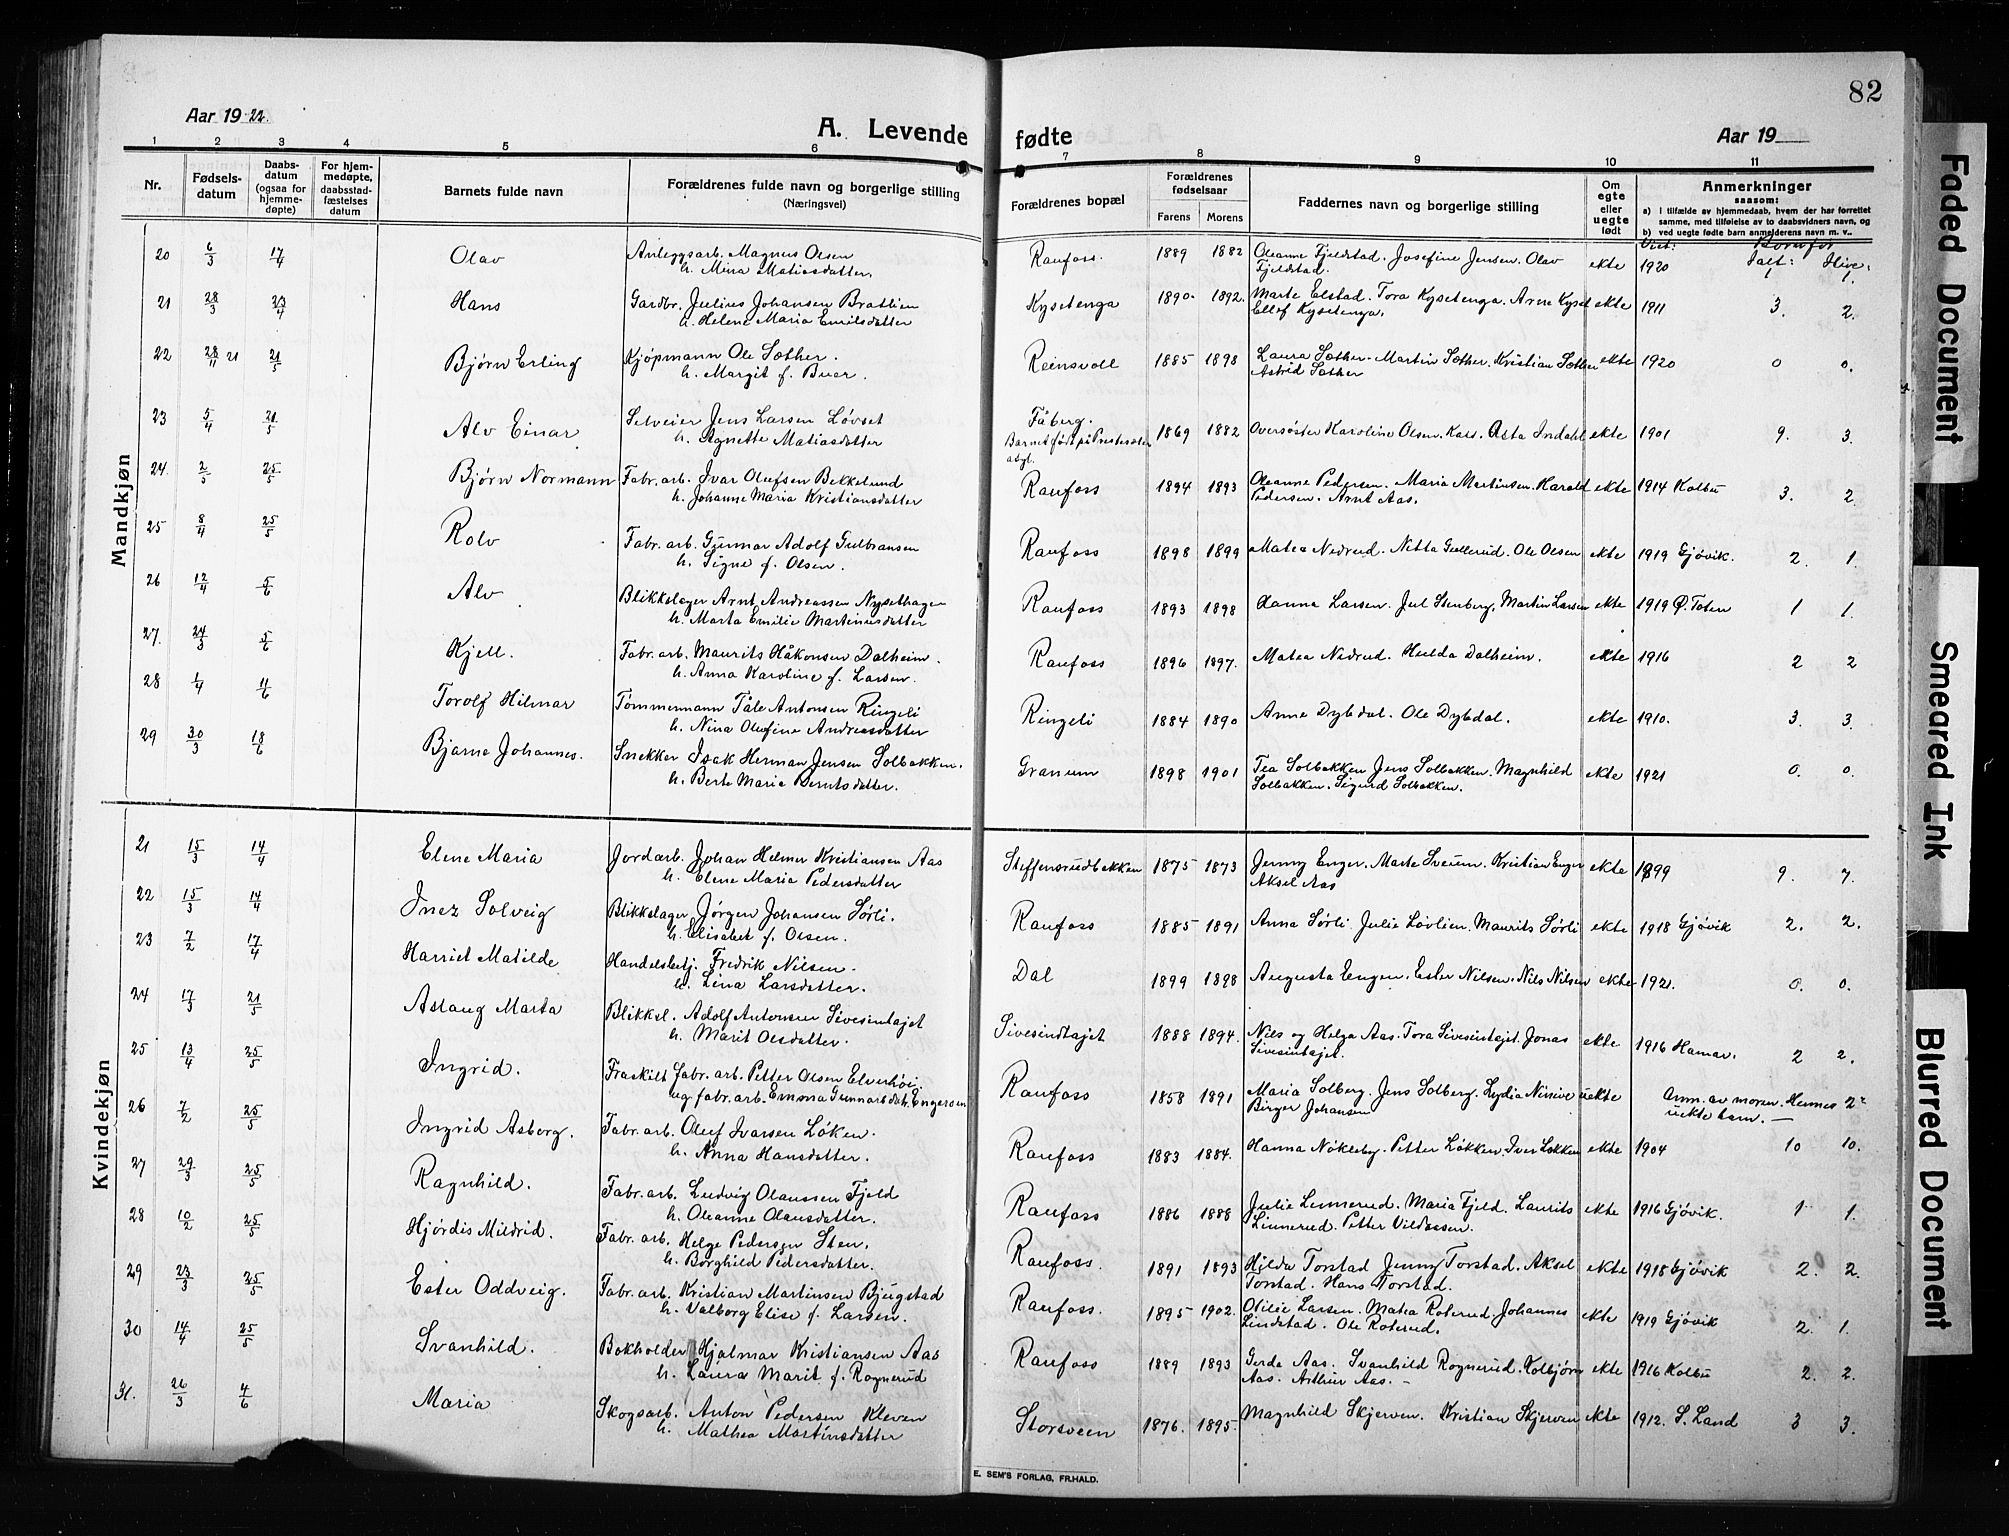 82
Aar 1922.
A. Levende
fødte
Aar 19
1 2 3 4 5 6 7 8 9 10 11
Nr.
Fødsels-
datum
Daabs-
datum
(ogsaa for
hjemme-
døpte)
For hjem-
medøpte,
daabsstad-
fæstelses
datum
Barnets fulde navn
Forældrenes fulde navn og borgerlige stilling
(Næringsvei)
Forældrenes bopæl
Forældrenes
fødselsaar
Farens Morens
Faddernes navn og borgerlige stilling
Om
egte
eller
uegte
født
Anmerkninger
saasom:
a) I tilfælde av hjemmedaab, hvem der har forrettet
samme, med tilføielse av to daabsvidners navn, og
b) ved uegte fødte barn anmelderens navn m. v..
Viet: Barn før
Ialt: Ilive:
Mandkjøn
20 6/3 17/4 Olav Anleggsarb. Magnus Olsen Raufoss. 1889 1882 Oleanne Fjeldstad. Josefine Jensen. Olav ekte 1920
h. Mina Matiasdatter. Fjeldstad.
21 28/3 23/4 Hans Gardbr. Julius Johansen Bratlien Kysetenga 1890 1892. Marte Elstad. Tora Kysetenga. Arne Kyset ekte 1911 3. 2.
h. Helene Maria Emilsdatter Ellef Kysetenga.
22 28/11 21 21/5 Bjørn Erling Kjøpmann Ole Sæther. Reinsvoll 1885 1898 Laura Sæther. Martin Sæther. Kristian Sæther ekte 1920 0 0.
h. Margit f. Buer. Astrid Sæther
23 5/4 21/5 Alv Einar Selveier Jens Larsen Løvset Fåberg. 1869 1882 Oversøster Karoline Olsen. Kass. Asta Indahl ekte 1901 9. 3.
h. Agnette Matiasdatter
24. 2/5 25/5 Bjørn Normann Fabr. arb. Ivar Olufsen Bekkelund Raufoss 1894 1893 Oleanne Pedersen. Maria Martinsen. Harald ekte 1914 Kolbu 3. 2
h. Johanne Maria Kristiansdatter Pedersen. Arnt Aas.
25 8/4 25/5 Rolv Fabr. arb. Gunnar Adolf Gulbransen Raufoss 1898 1899 Matea Nedrud. Nitta Gullerud. Ole Olsen ekte 1919 Gjøvik. 2. 1.
h. Signe f. Olsen.
26 12/4 5/6 Alv Blikkslager Arnt Andreassen Nysethagen Raufoss 1893 1898 Hanna Larsen. Jul Stenberg. Martin Larsen ekte 1919 Ø. Toten 1 1.
h. Marta Emilie Martinusdatter
27. 24/3 5/6 Kjell. Fabr. arb. Maurits Håkonsen Dalheim. Raufoss 1896 1897. Matea Nedrud. Hulda Dalheim. ekte 1916 2 2
h. Anna Karoline f. Larsen.
28 1/4 11/6 Torolf Hilmar Tømmermann Tåle Antonsen Ringeli Ringeli 1884 1890 Anne Dybdal. Ole Dybdal. ekte 1910. 3. 3.
h. Nina Olufine Andreasdatter
29 30/3 18/6 Bjarne Johannes. Snekker Isak Herman Jensen Solbakken. Granum 1898 1901 Tea Solbakken Jens Solbakken. Magnhild ekte 1921 0. 0.
h. Berte Marie Berntsdatter. Solbakken. Sigurd Solbakken.
Kvindekjøn
21 15/3 14/4 Elene Maria Jordarb. Johan Helmer Kristiansen Aas Steffensrudbakken 1875 1873 Jenny Enger. Marte Sveum. Kristian Enger ekte 1899 9. 7.
h. Elene Maria Pedersdatter Aksel Aas
22 15/3 14/4 Inez Solveig Blikkslager Jørgen Johansen Sørli. Raufoss 1885 1891 Anna Sørli. Julie Løvlien. Maurits Sørli ekte 1918 Gjøvik 2. 2.
h. Elisabet f. Olsen.
23 7/2 17/4 Harriet Matilde Handelsbetj. Fredrik Nilsen. Dal 1899 1898 Augusta Engen. Ester Nilsen. Nils Nilsen ekte 1921. 0. 0.
h. Lina Larsdatter.
24 17/3 21/5 Aslaug Marta Blikksl. Adolf Antonsen Sivesintajet Sivesindtajet 1888 1894. Nils og Helga Aas. Tora Sivesintajet. Jonas ekte 1916 Hamar. 2 2.
h. Marit Olsdatter. Sivesintajet.
25 13/4 25/5 Ingrid. Fraskilt fabr. arb. Petter Olsen Elverhöi Raufoss 1858 1891 Maria Solberg. Jens Solberg. Lydia uekte Anm. av moren. Hennes 2
ug. fabr. arb. Emma Gunnarsdtr. Engersen Birger Johansen uekte barn. —
26 7/2 25/5 Ingrid Asborg. Fabr. arb. Oluf Ivarsen Løken. Raufoss 1883 1884. Hanna Nökleby. Petter Løkken. Iver Løkken ekte 1904 10 10.
h. Anna Hansdatter.
27 29/3 25/5 Ragnhild. Fabr. arb. Ludvig Olaussen Fjeld Raufoss 1886 1888 Julie Linnerud. Maria Fjeld. Laurits ekte 1916 Gjøvik. 1 1.
h. Oleanne Olausdatter. Linnerud. Petter Vildåsen.
28 10/2 25/5 Hjørdis Mildrid. Fabr. arb. Helge Pedersen Sten. Raufoss. 1891 1893 Hilda Torstad Jenny Torstad. Aksel ekte 1918 Gjøvik 2. 2.
h. Borghild Pedersdatter. Torstad. Hans Torstad.
29 23/3 25/5 Ester Oddveig. Fabr. arb. Kristian Martinsen Bjugstad Raufoss. 1895 1902. Otilie Larsen. Matea Roterud. Johannes ekte 1919 Gjøvik 2. 1.
h. Valborg Elise f. Larsen. Lindstad. Ole Roterud.
30 14/4 25/5 Svanhild. Bokholder Hjalmar Kristiansen Aas Raufoss 1889 1893 Gerda Aas. Svanhild Rognerud. Kolbjørn ekte 1916 Kolbu 2. 2.
h. Laura Marit f. Rognerud Aas. Arthur Aas. –
31. 26/3 4/6 Maria Skogsarb. Anton Pedersen Kleven Storsveen 1876. 1895. Magnhild Skjerven. Kristian Skjerven ekte 1912. S. Land 3 3.
h. Mathea Martinsdatter
E. SEM'S FORLAG, FR.HALD.
Faded Document
Smeared Ink
Blurred Document